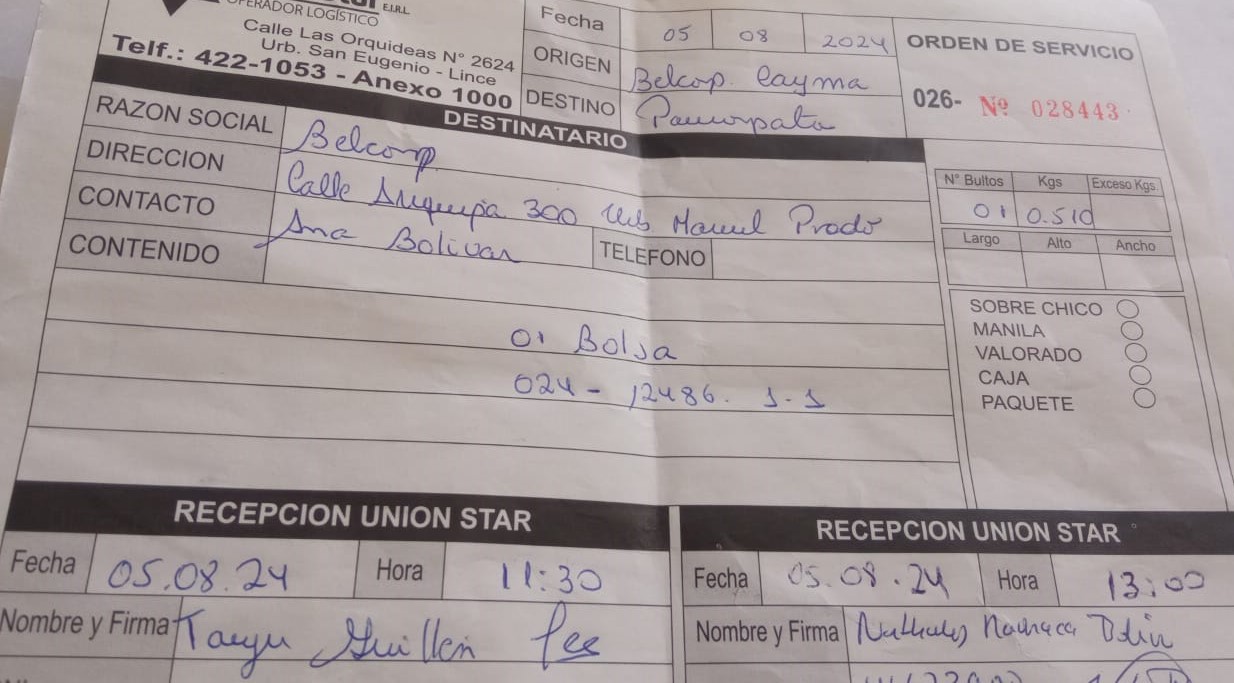 OPERADOR LOGÍSTICO E.I.R.L
Calle Las Orquideas N° 2624
Urb. San Eugenio - Lince
Telf.: 422-1053 - Anexo 1000
Fecha 05 08 2024
ORIGEN Belcorp. Cayma
DESTINO
ORDEN DE SERVICIO
026- Nº 028443
DESTINATARIO
RAZON SOCIAL Belcorp
DIRECCION Calle Arequipa 300 Urb Manuel Prado
CONTACTO Ana Bolivar
TELEFONO
CONTENIDO
01 Bolsa
024 - 12486. 1-1
N° Bultos Kgs Exceso Kgs.
01 0.510
Largo Alto Ancho
SOBRE CHICO
MANILA
VALORADO
CAJA
PAQUETE
RECEPCION UNION STAR
Fecha 05.08.24 Hora 11:30
Nombre y Firma Guillen
RECEPCION UNION STAR
Fecha 05.08.24 Hora 13:00
Nombre y Firma